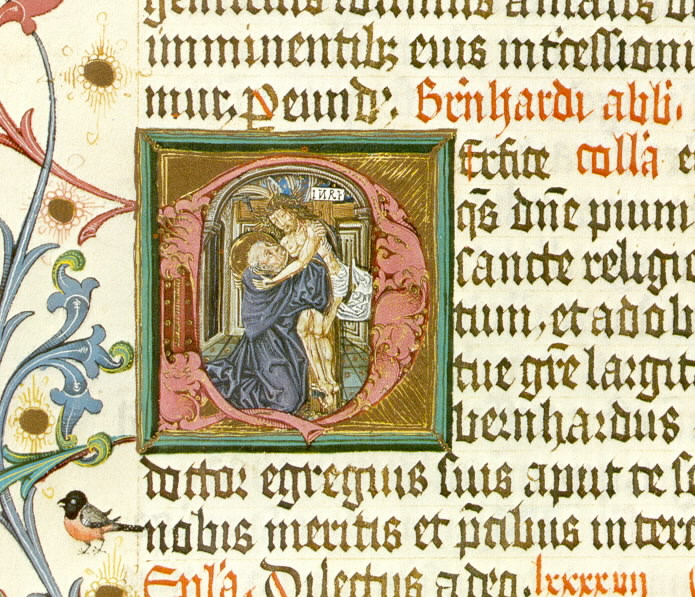 imminentib; eius intercessioni
mur. p eund;. Bernhardi abb.
Erfice colla
INRI
qs dne pium
sancte religio
tum, et adob
tue gre largit
bernhardus
dottor egregius suis aput te
nobis meritis et pcibus inter
Epla. Dilectus a deo. lxxxxvii